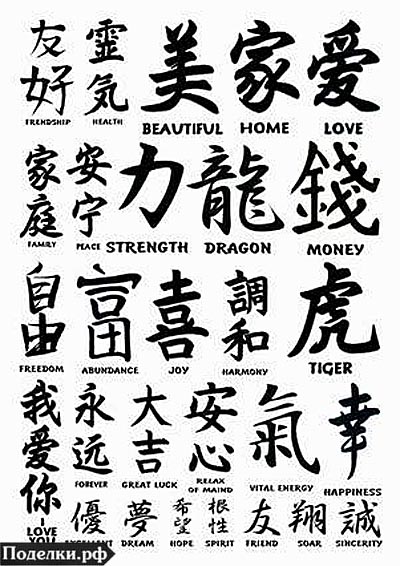 友好 靈気 美 家 爱
FRENDSHIP HEALTH BEAUTIFUL HOME LOVE
家庭 安宁 力 龍 錢
FAMIRY PEACE STRENGTH DRAGON MONEY
自由 富 喜 調和 虎
FREEDOM ABUNDANCE JOY HARMONY TIGER
我爱你 永远 大吉 安心 氣 幸
I LOVE YOU FOREVER GREAT LUCK RELAX OF MAIND VITAL ENERGY HAPPINESS
優 夢 希望 根性 友 翔 誠
EXCELLENT DREAM HOPE SPIRIT FRIEND SOAR SINCERITY
Поделки.рф